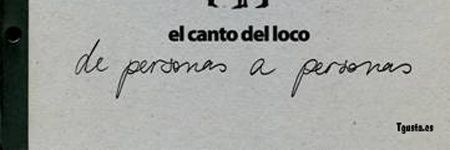 el canto del loco
de personas a personas
Tgusta.es